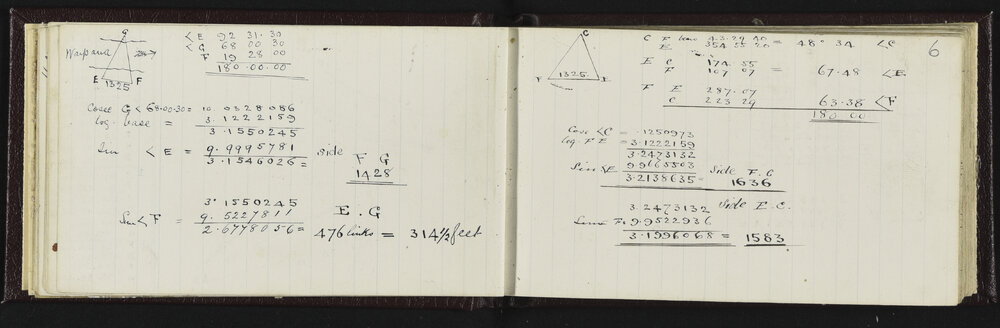 G
Waipaua
E F
1325
<E 92 31.30
<G 68 00 30
F 19 28 00
180.00.00
Cosec G < 68.00.30 = 10.0328086
log. base = 3.1222159
3.1550245
Sin <E = 9.9995781 side F G
3.1546026 = 1428
3.1550245
Sin < F = 9.5227811 E.G
2.6778056 = 476 links = 314½ feet
6
C
1325
F E
C F 43.29 20
E 354 55 20 = 48° 34 <C
E C 174.55
F 107 07 = 67.48 <E
F E 287.07
C 223 29 63.38 <F
180 00
Cosec <C = .1250973
log. F E = 3.1222159
3.2473132
Sin <E 9.9665503 Side F.C
3.2138635 = 1636
3.2473132 Side E C.
Sine F = 9.9522936
3.1996068 = 1583